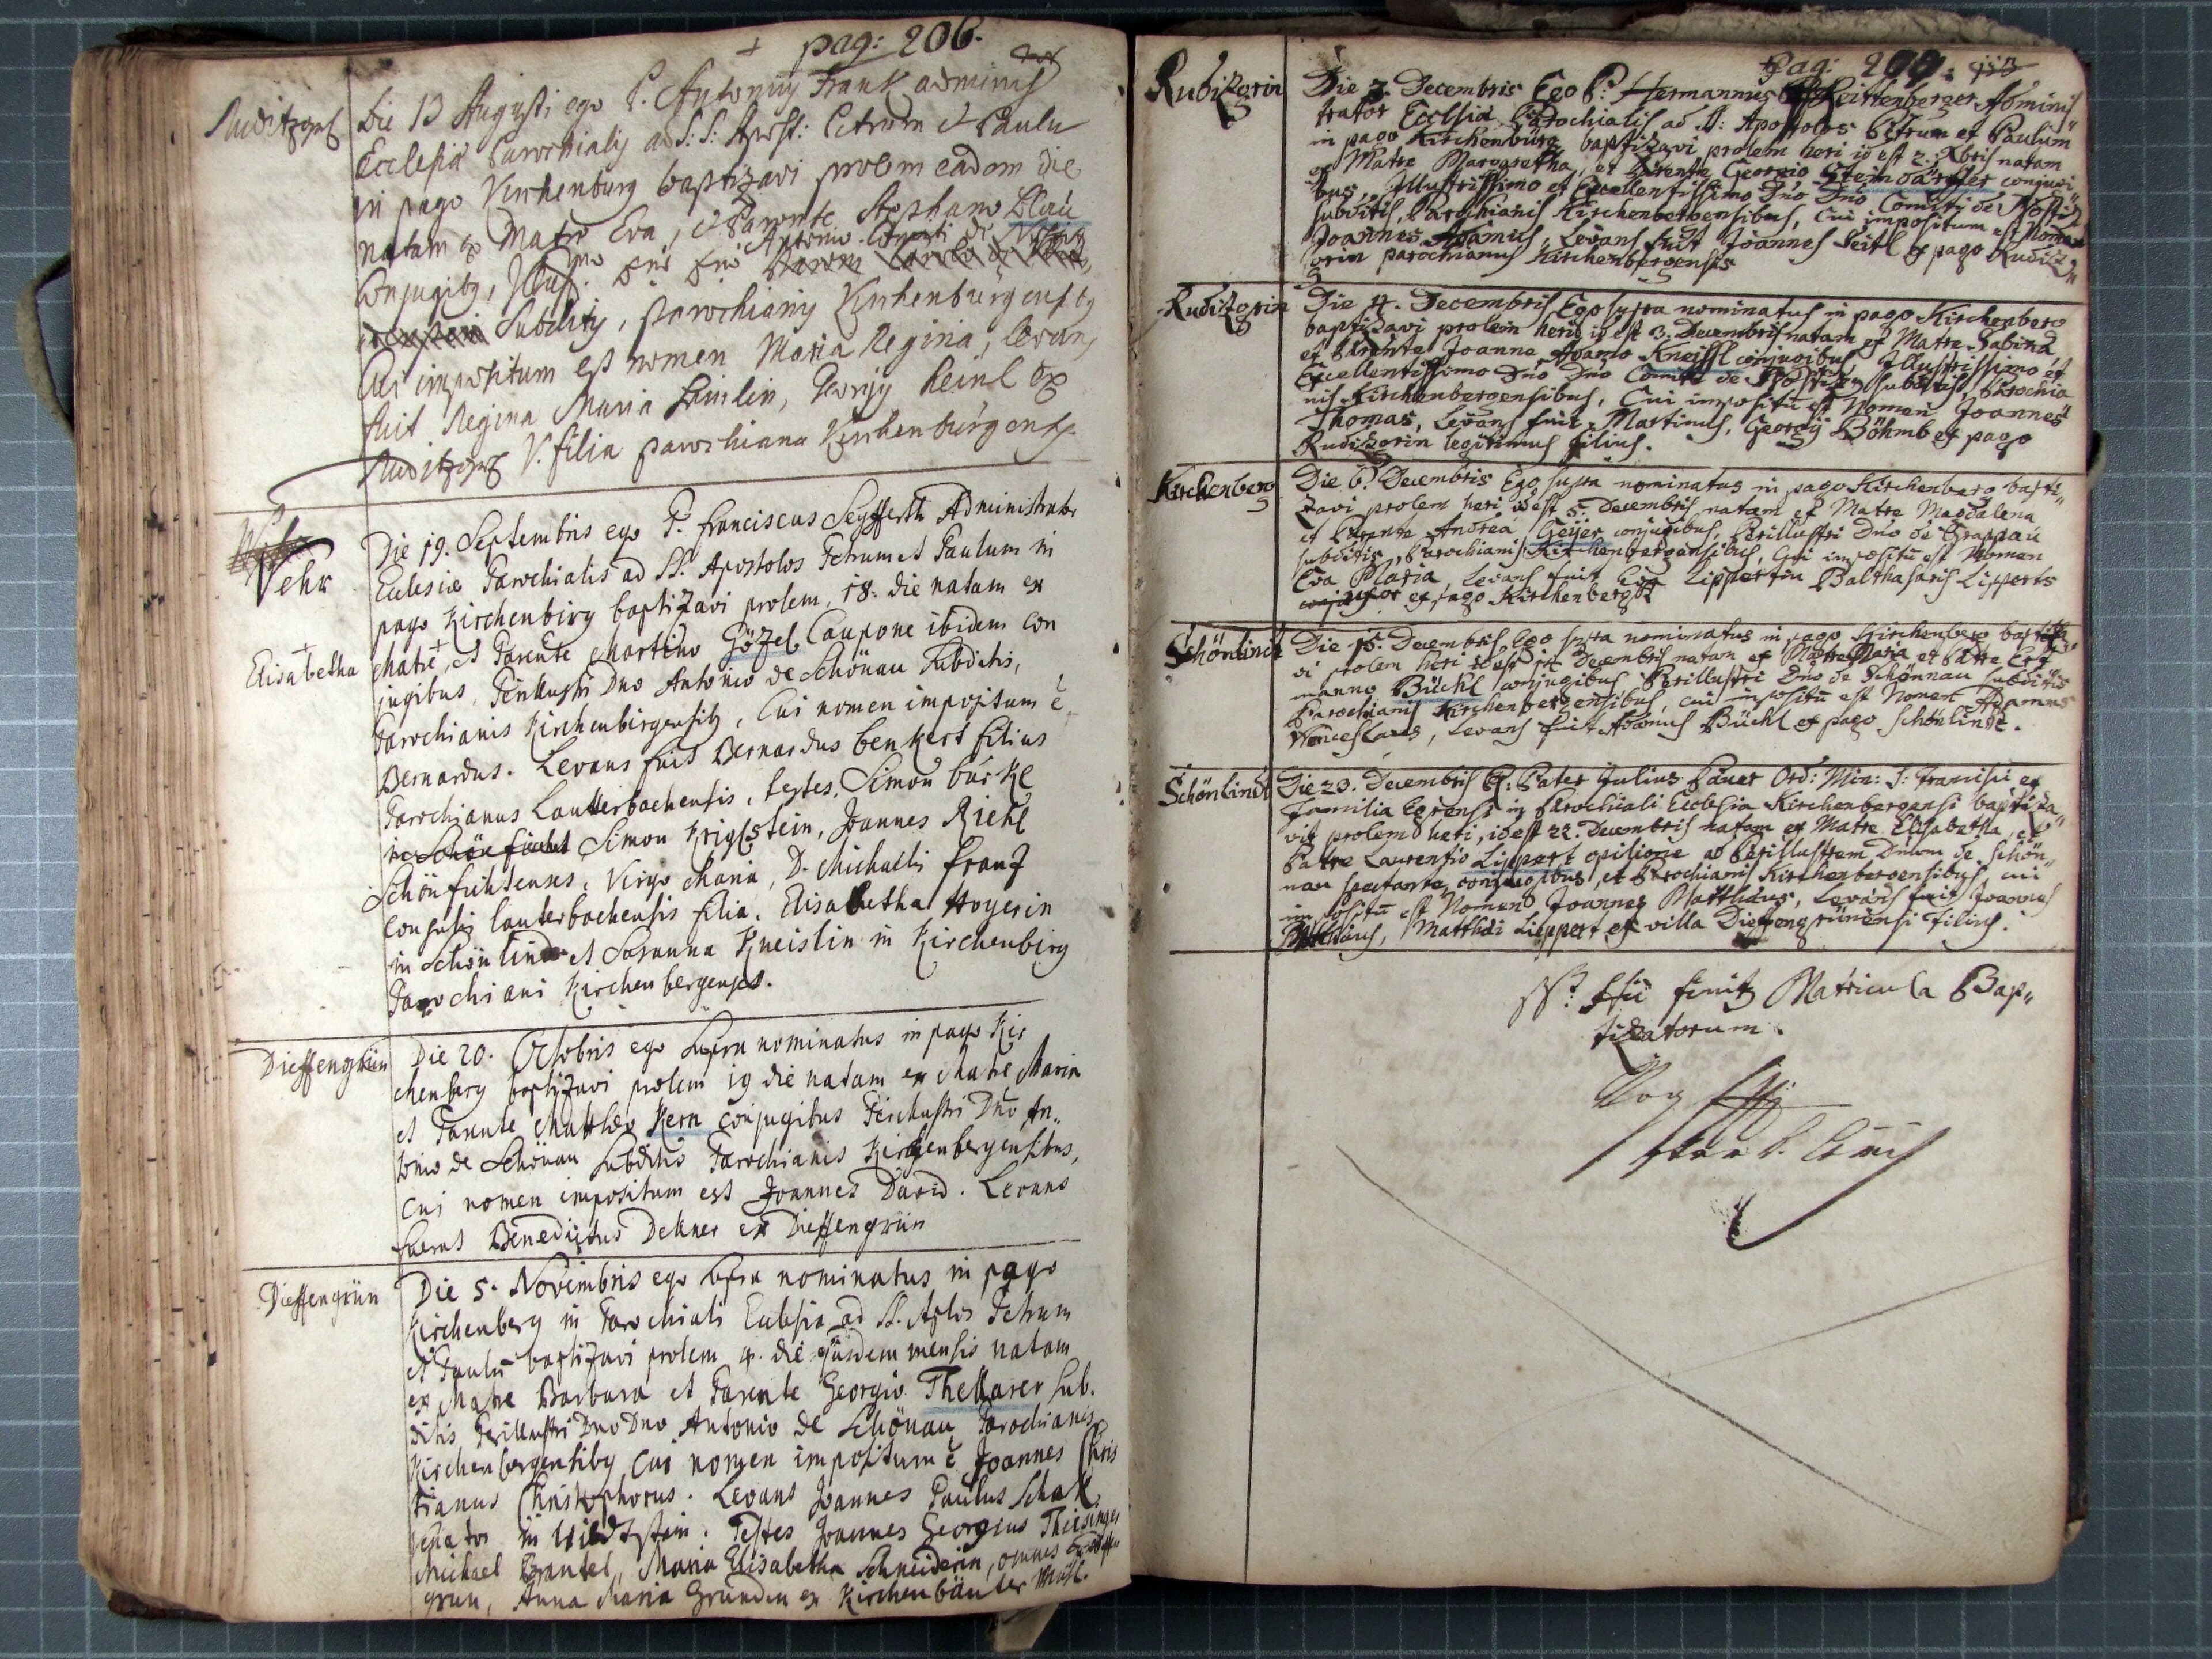 pag: 206.
Die 13 Augusti ego P. Antonius Frank adminis
Ecclesiæ Parochialis ad S: S: Apost: Petrum et Paulu
in pago Kirchenburg baptizavi prolem eadem die
natam ex Matre Eva, et Parente Stephano
Conjugibus, Illus. Dno Dno Antonio Comiti de
Subditis, parochianis Kirchenburgensibus
Cui impositum est nomen Maria Regina, levans
fuit Regina Maria Georgij Heinl ex
V. filia parochiana Kirchenburgens.
Wehr
Die 19. Septembris ego P. Franciscus Seyfferth Administrator
Eclesiæ Parochialis ad SS. Apostolos Petrum et Paulum in
pago Kirchenbirg baptizavi prolem, 18. die natam ex
Elisabetha
Matre + et Parente Martino Gözel Caupone ibidem con
jugibus, Perillustri Dno Antonio de Schönau Subditis,
Parochianis Kirchenbirgensibus, Cui nomen impositum ē
Bernardus. Levans fuit Bernardus Benkert filius
Parochianus Lautterbachensis, testes, Simon
in Schönficht Simon Kriglstein, Joannes Riehl
Schönfichtenses, Virgo Maria, D. Michaelis Franz
Consulis lauterbachensis filia, Elisabetha Hoyerin
in Schönlind et Susanna Kneislin in Kirchenbirg
Parochiani Kirchenbergenses.
Dieffengrün
Die 20. Octobris ego supra nominatus in pago Kir
chenberg baptizavi prolem 19 die natam ex Matre Maria
et Parente Matthæo Kern conjugibus Perillustri Dno An„
tonio de Schönau subditis Parochianis Kirchenbergensibus,
cui nomen impositum est Joannes David. Levans
fuerat Benedictus Dekner ex Dieffengrün
Dieffengrün
Die 5. Novembris ego supra nominatus in pago
Kirchenberg in Parochiali Eclesia ad SS. Aplos Petrum
et Paulū baptizavi prolem 4. die ejusdem mensis natam
ex Matre Barbara et Parente Georgio Thellarer sub.
ditis Perillustri Dno Dno Antonio de Schönau, Parochianis
Kirchenbergensibus, cui nomen impositum ē Joannes Chris
tianus Christophorus. Levans Joannes Paulus
in Wildtstein. Testes Joannes Georgius Theisinger
Michael Brantel, Maria Elisabetha Schneiderin, omnes
grün, Anna Maria Gründin ex Kirchenbäuter Mühl.
Pag:
Rudizgrin
Die 3. Decembris Ego P: Hermannus Reittenberger Adminis„
trator Ecclsiæ Parochialis ad SS: Apostolos Petrum et Paulum
in pago Kirchenbürg baptizavi prolem heri id est 2. Xbris natam
ex Matre Margaretha, et Parente Georgio Steindärffer conjugi„
bus, Illustrissimo et Excellentissimo Dno Dno Comiti de Nostiz
subditis, Parochianis Kirchenbergensibus, Cui impositum est Nomen
Joannes Adamus, Levans fuit Joannes Seitl ex pago Rudizg„
grin parochianus Kirchenbergensis
Rudizgrin
Die 4. Decembris Ego supra nominatus in pago Kirchenberg
baptizavi prolem heri id est 3. Decembris natam ex Matre Sabina
et Parente Joanne Adamo Kneissl conjugibus Illustrissimo et
Excellentissimo Dno Dno Comiti de Nostiz subditis, Parochia
nis Kirchenbergensibus, Cui impositū est Nomen Joannes
Thomas, Levans fuit Martinus, Georgij Böhmb ex pago
Rudizgrin legitimus filius.
Kirchenberg
Die 6. Decembris Ego supra nominatus in pago Kirchenberg bapti„
zavi prolem heri id est 5. Decembris natam ex Matre Magdalena
et Parente Andrea Geijer conjugibus, Perillustri Dno de Trappau
subditis, Parochianis Kirchenbergensibus, Cui impositū est Nomen
Eva Maria, Levans fuit Eva Lippertin Balthasaris Lipperts
uxor ex pago Kirchenberg
Schönlind
Die 15. Decembris Ego supra nominatus in pago Kirchenberg baptiza
vi prolem heri id est 14 Decembris natam ex Matre Maria et Patre Er
manno Büchl conjugibus Perillustri Dno de Schönnau subditis
Parochianis Kirchenbergensibus, cui impositū est Nomen Adamus
Wenceslaus, Levans fuit Adamus Büchl ex pago Schönlindt.
Schönlindt
Die 23. Decembris P: Pater Julius Ord: Min: S: Francisci ex
Familia Egrensi in Parochiali Ecclesia Kirchenbergensi baptiza„
vit prolem heri, id est 22. Decembris natam ex Matre Elisabetha, et
Patre Laurentio Lippert opilione ad Perillustrem Dnum de Schön„
nau spectante conjugibus, et Parochianis Kirchenbergensibus, cui
impositū est Nomen Joannes Matthæus, Levans fuit Joannes
Matthæus, Matthæi Lippert ex villa Dieffengrünensi filius.
finit Matricula Bap„
tizatorum.